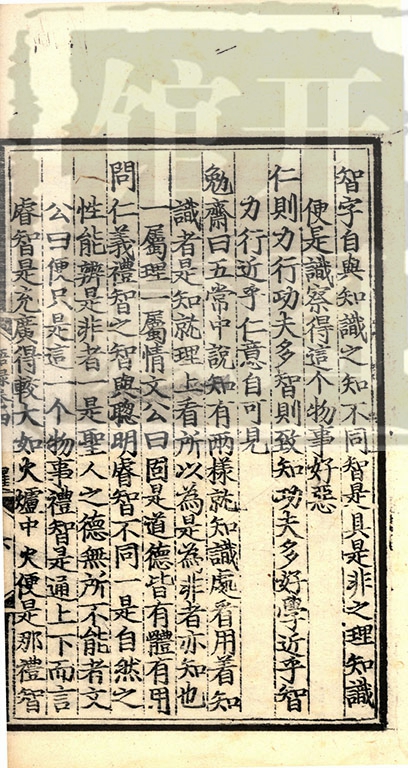 智字自與知識之知不同智是具是非之理知識
便是識察得這个物事好惡
仁則力行功夫多智則致知功夫多好學近乎智
力行近乎仁意自可見
勉齋曰五常中說知有兩樣就知識處看用着知
識者是知就理上看所以為是為非者亦知也
一屬理一屬情文公曰固是道德皆有體有用
問仁義禮智之智與聦明睿智不同一是自然之
性能辨是非者一是聖人之德無所不能者文
公曰便只是這一个物事禮智是通上下而言
睿智是充廣得較大如火爐中火便是那禮智